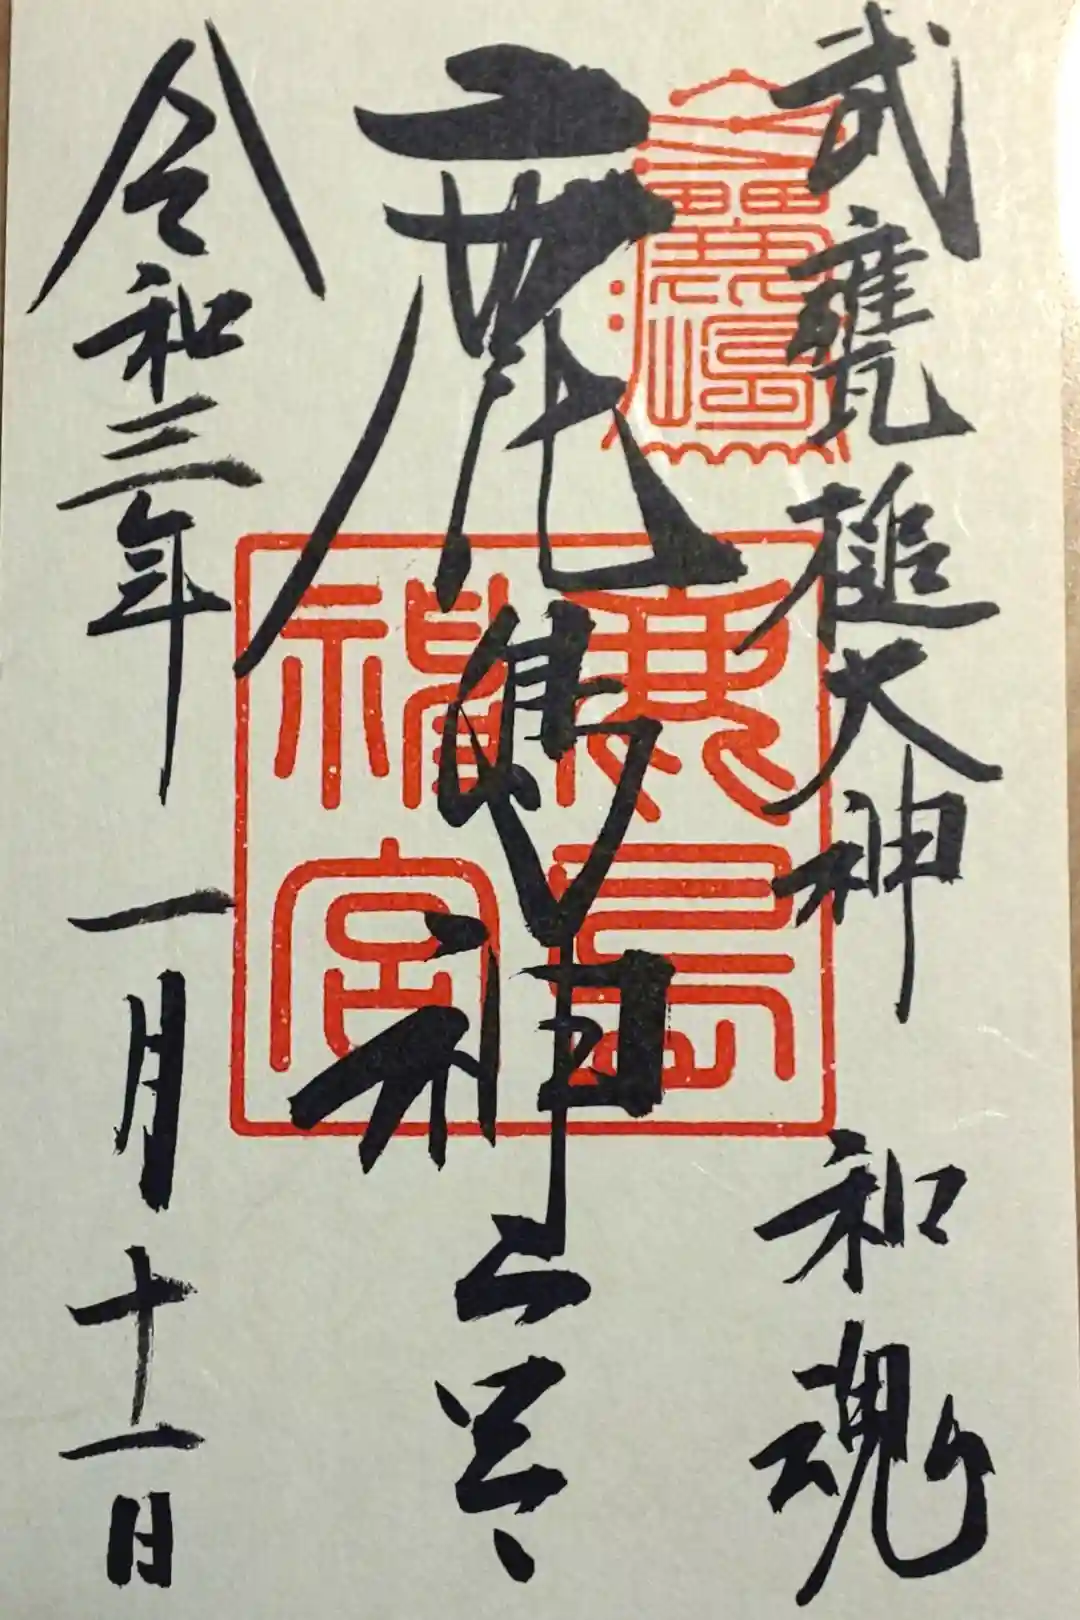 武甕槌大神 和魂
鹿島神宮
鹿島
神宮
令和三年一月十一日